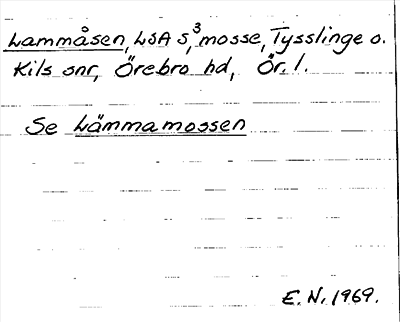 Lammåsen, LSA S,³ mosse, Tysslinge o.
Kils snr, Örebro hd, Ör. l.
Se Lämmamossen
E. N. 1969.